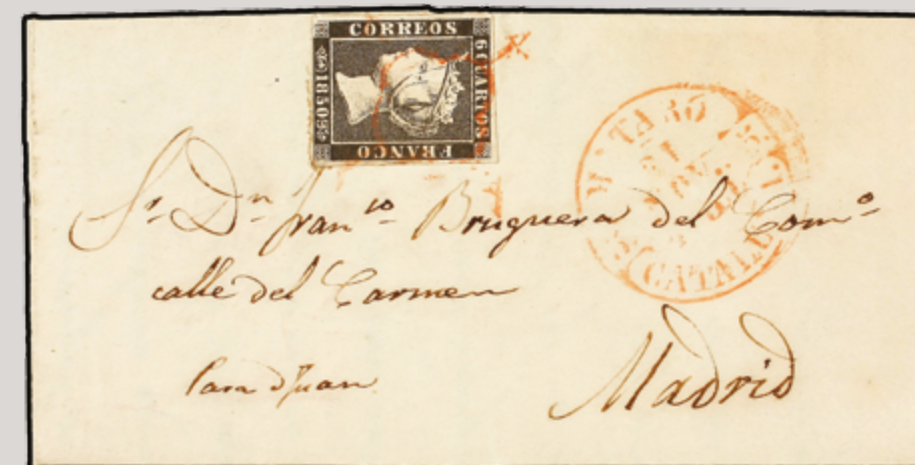 CORREOS
6 CUARTOS
1850
FRANCO
MATARÓ
CATALU
Sr. Dn. Franco Bruguera del Como
calle del Carmen
Para d Juan
Madrid